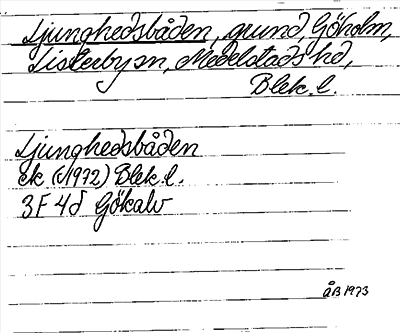 Ljunghedsbåden, grund, Göholm,
Listerby sn, Medelstads hd,
Blek. l.
Ljunghedsbåden
ek (1972) Blek. l.
3F 4d Gökalv
ÅB 1973